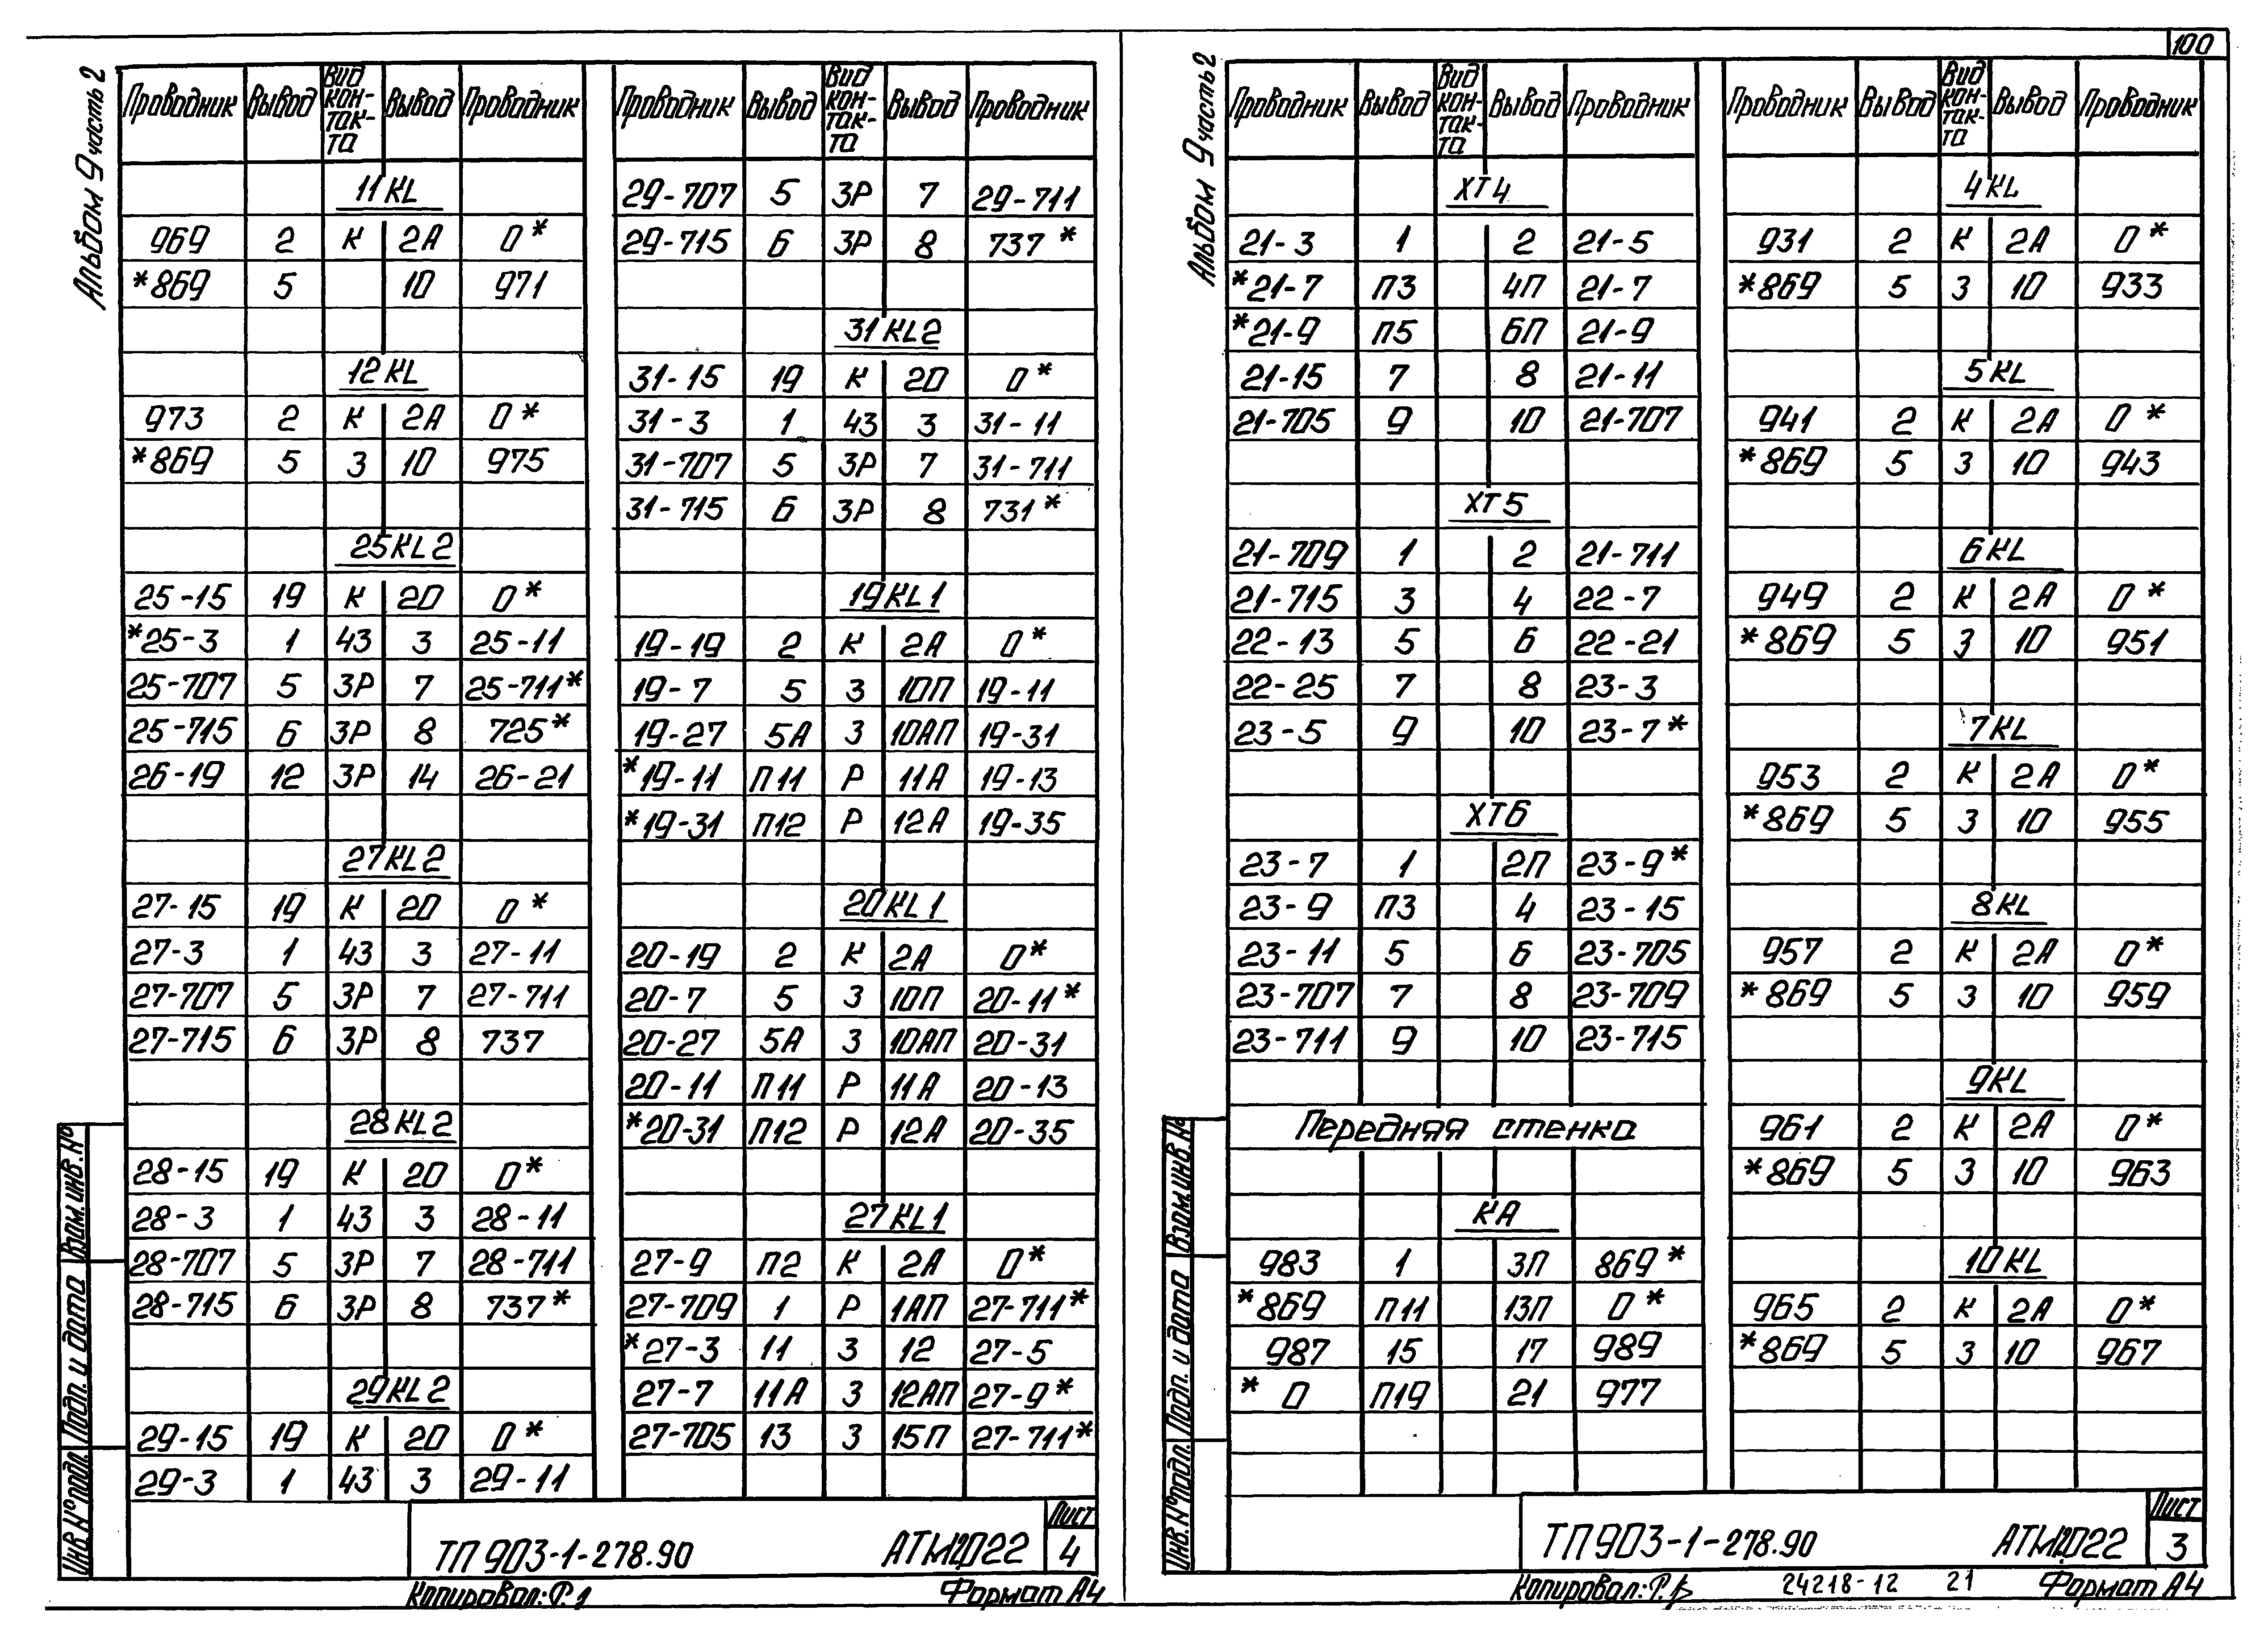 100
Альбом 9 часть 2
Проводник Вывод Вид кон-так-та Вывод Проводник
11KL
969 2 К 2А 0*
*869 5 10 971
12KL
973 2 К 2А 0*
*869 5 З 10 975
25KL2
25-15 19 К 20 0*
*25-3 1 43 3 25-11
25-707 5 ЗР 7 25-711*
25-715 6 ЗР 8 725*
26-19 12 ЗР 14 26-21
27KL2
27-15 19 К 20 0*
27-3 1 43 3 27-11
27-707 5 ЗР 7 27-711
27-715 6 ЗР 8 737
28KL2
28-15 19 К 20 0*
28-3 1 43 3 28-11
28-707 5 ЗР 7 28-711
28-715 6 ЗР 8 737*
29KL2
29-15 19 К 20 0*
29-3 1 43 3 29-11
Проводник Вывод Вид кон-так-та Вывод Проводник
29-707 5 ЗР 7 29-711
29-715 6 ЗР 8 737*
31KL2
31-15 19 К 20 0*
31-3 1 43 3 31-11
31-707 5 ЗР 7 31-711
31-715 6 ЗР 8 731*
19KL1
19-19 2 К 2А 0*
19-7 5 З 10П 19-11
19-27 5А З 10АП 19-31
*19-11 П11 Р 11А 19-13
*19-31 П12 Р 12А 19-35
20KL1
20-19 2 К 2А 0*
20-7 5 З 10П 20-11*
20-27 5А З 10АП 20-31
20-11 П11 Р 11А 20-13
*20-31 П12 Р 12А 20-35
27KL1
27-9 П2 К 2А 0*
27-709 1 Р 1АП 27-711*
*27-3 11 З 12 27-5
27-7 11А З 12АП 27-9*
27-705 13 З 15П 27-711*
Инв.№ подл. Подп. и дата Взам.инв.№
ТП 903-1-278.90 АТМ2022 Лист 4
Копировал: Формат А4
Альбом 9 часть 2
Проводник Вывод Вид кон-так-та Вывод Проводник
ХТ4
21-3 1 2 21-5
*21-7 П3 4П 21-7
*21-9 П5 6П 21-9
21-15 7 8 21-11
21-705 9 10 21-707
ХТ5
21-709 1 2 21-711
21-715 3 4 22-7
22-13 5 6 22-21
22-25 7 8 23-3
23-5 9 10 23-7*
ХТ6
23-7 1 2П 23-9*
23-9 П3 4 23-15
23-11 5 6 23-705
23-707 7 8 23-709
23-711 9 10 23-715
Передняя стенка
КА
983 1 3П 869*
*869 П11 13П 0*
987 15 17 989
*0 П19 21 977
Проводник Вывод Вид кон-так-та Вывод Проводник
4KL
931 2 К 2А 0*
*869 5 З 10 933
5KL
941 2 К 2А 0*
*869 5 З 10 943
6KL
949 2 К 2А 0*
*869 5 З 10 951
7KL
953 2 К 2А 0*
*869 5 З 10 955
8KL
957 2 К 2А 0*
*869 5 З 10 959
9KL
961 2 К 2А 0*
*869 5 З 10 963
10KL
965 2 К 2А 0*
*869 5 З 10 967
Инв.№ подл. Подп. и дата Взам.инв.№
ТП 903-1-278.90 АТМ2022 Лист 3
Копировал: 24218-12 21 Формат А4